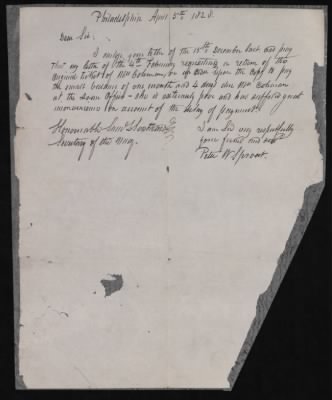 Philadelphia April 5th 1828.
Dear Sir.
I enclose your letter of the 15th December last and pray
that my letter of the 4th February requesting a return of the
original ticket of Mrs Coleman, be up
the small balance of one month and 4 days due Mrs Coleman
at the Loan Office - she is extremely poor and has suffered great
inconvenience on account of the delay of payment.
Honourable Saml Southard
Secretary of the Navy.
I am Sir very respectfully
your friend and
Peter W Sprout.